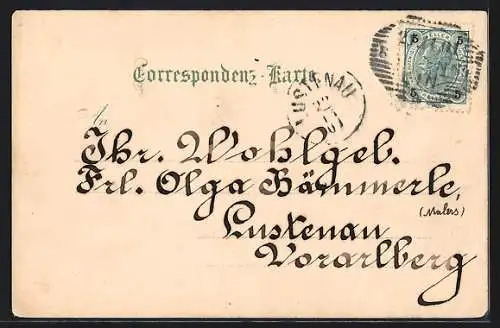 Correspondenz-Karte
LUSTENAU
An
Ihr. Wohlgeb.
Frl. Olga Bämmerle,
(Malers)
Lustenau
Vorarlberg